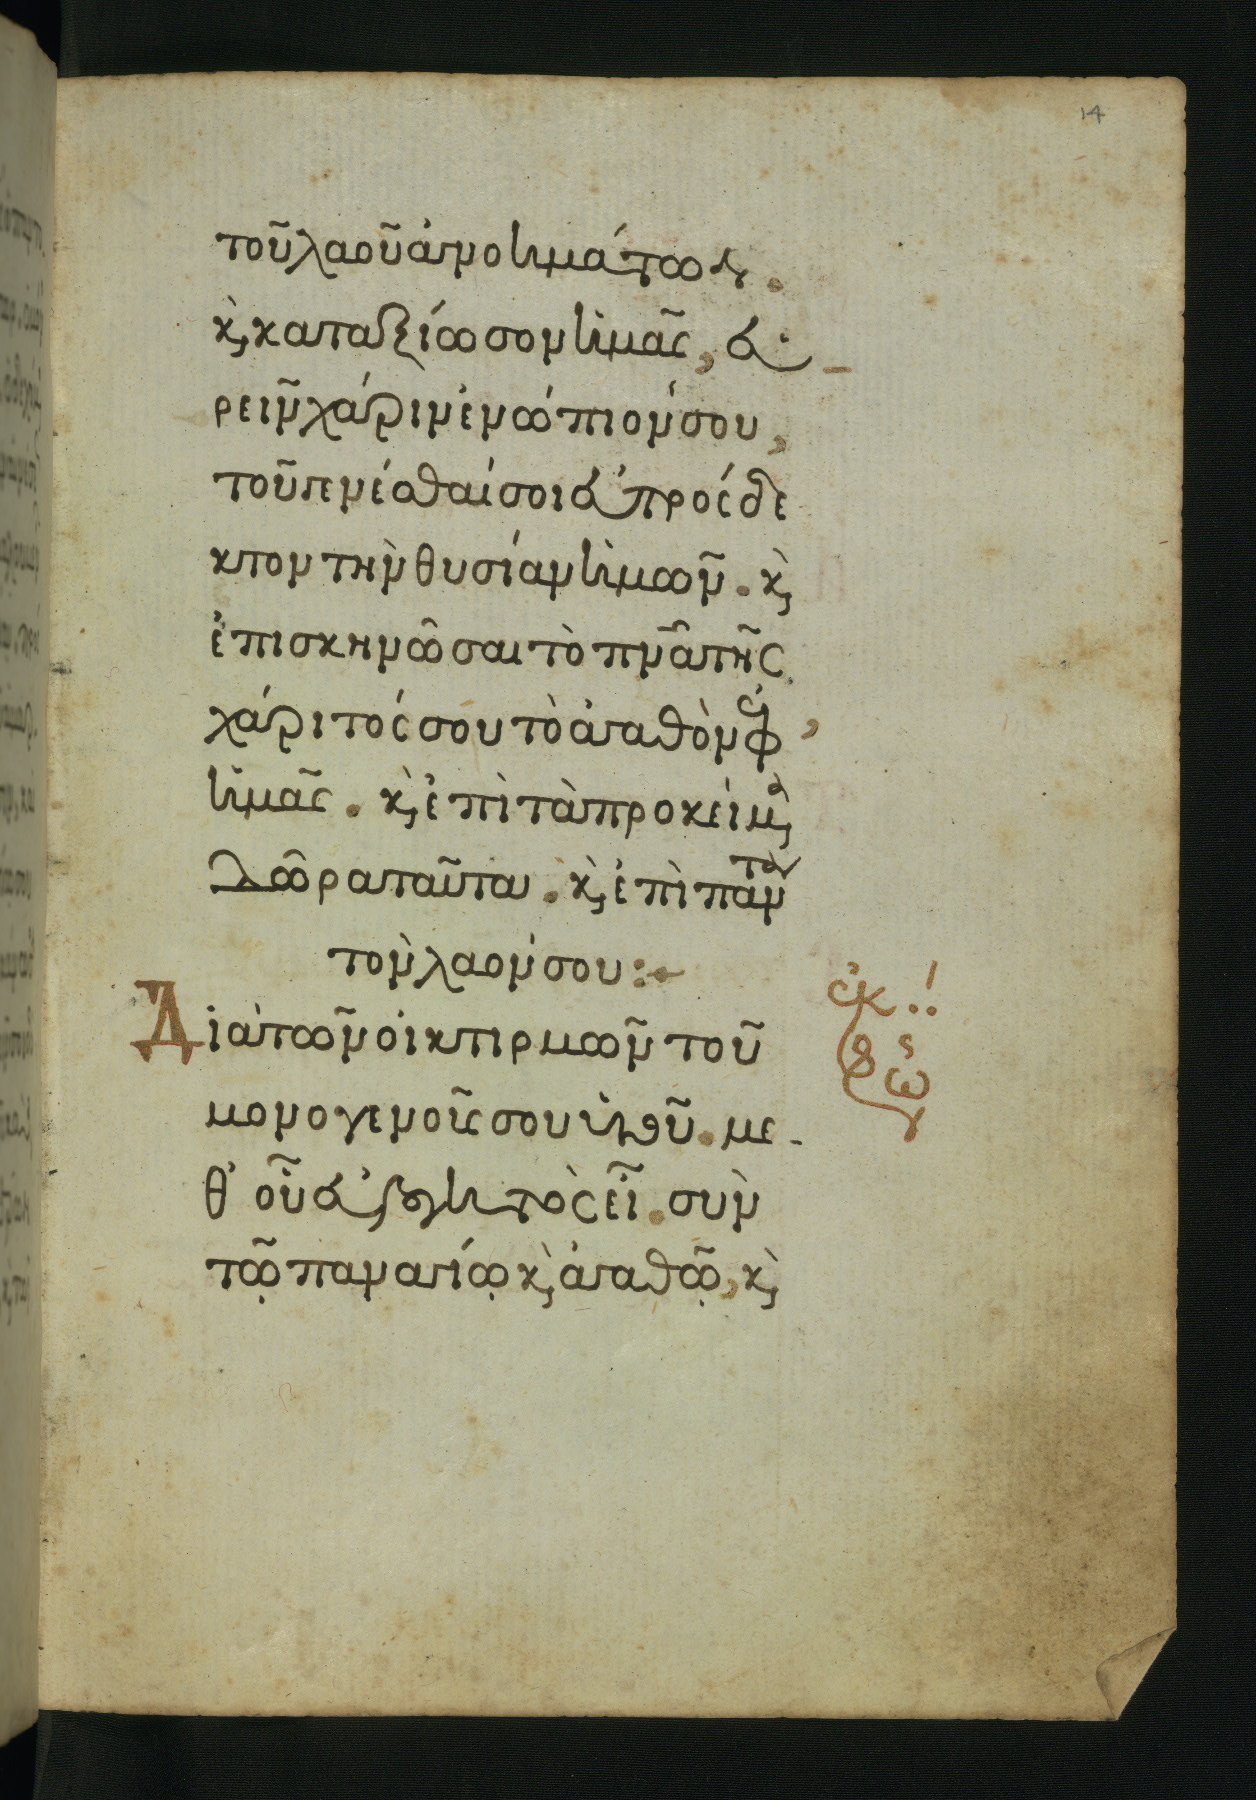 14
τοῦ λαοῦ ἀγνοημάτων.
κ̀ καταξίωσον ἡμᾶς, εὑ-
ρεῖν χάριν ἐνώπιόν σου,
τοῦ γενέσθαί σοι εὐπρόσδε
κτον τὴν θυσίαν ἡμῶν. κ̀
ἐπισκηνῶσαι τὸ πν̅α τῆς
χάριτός σου τὸ ἀγαθὸν ἐφ,
ἡμᾶς. κ̀ ἐπὶ τὰ προκείμ̀
δῶρα ταῦτα. κ̀ ἐπὶ πάντα
τὸν λαόν σου:
Διὰ τῶν οἰκτιρμῶν τοῦ
ἐκ..
μονογενοῦς σου υἱοῦ. με-
θ' οὗ εὐλογητὸς εἶ. σὺν
τῷ παναγίῳ κ̀ ἀγαθῷ, κ̀